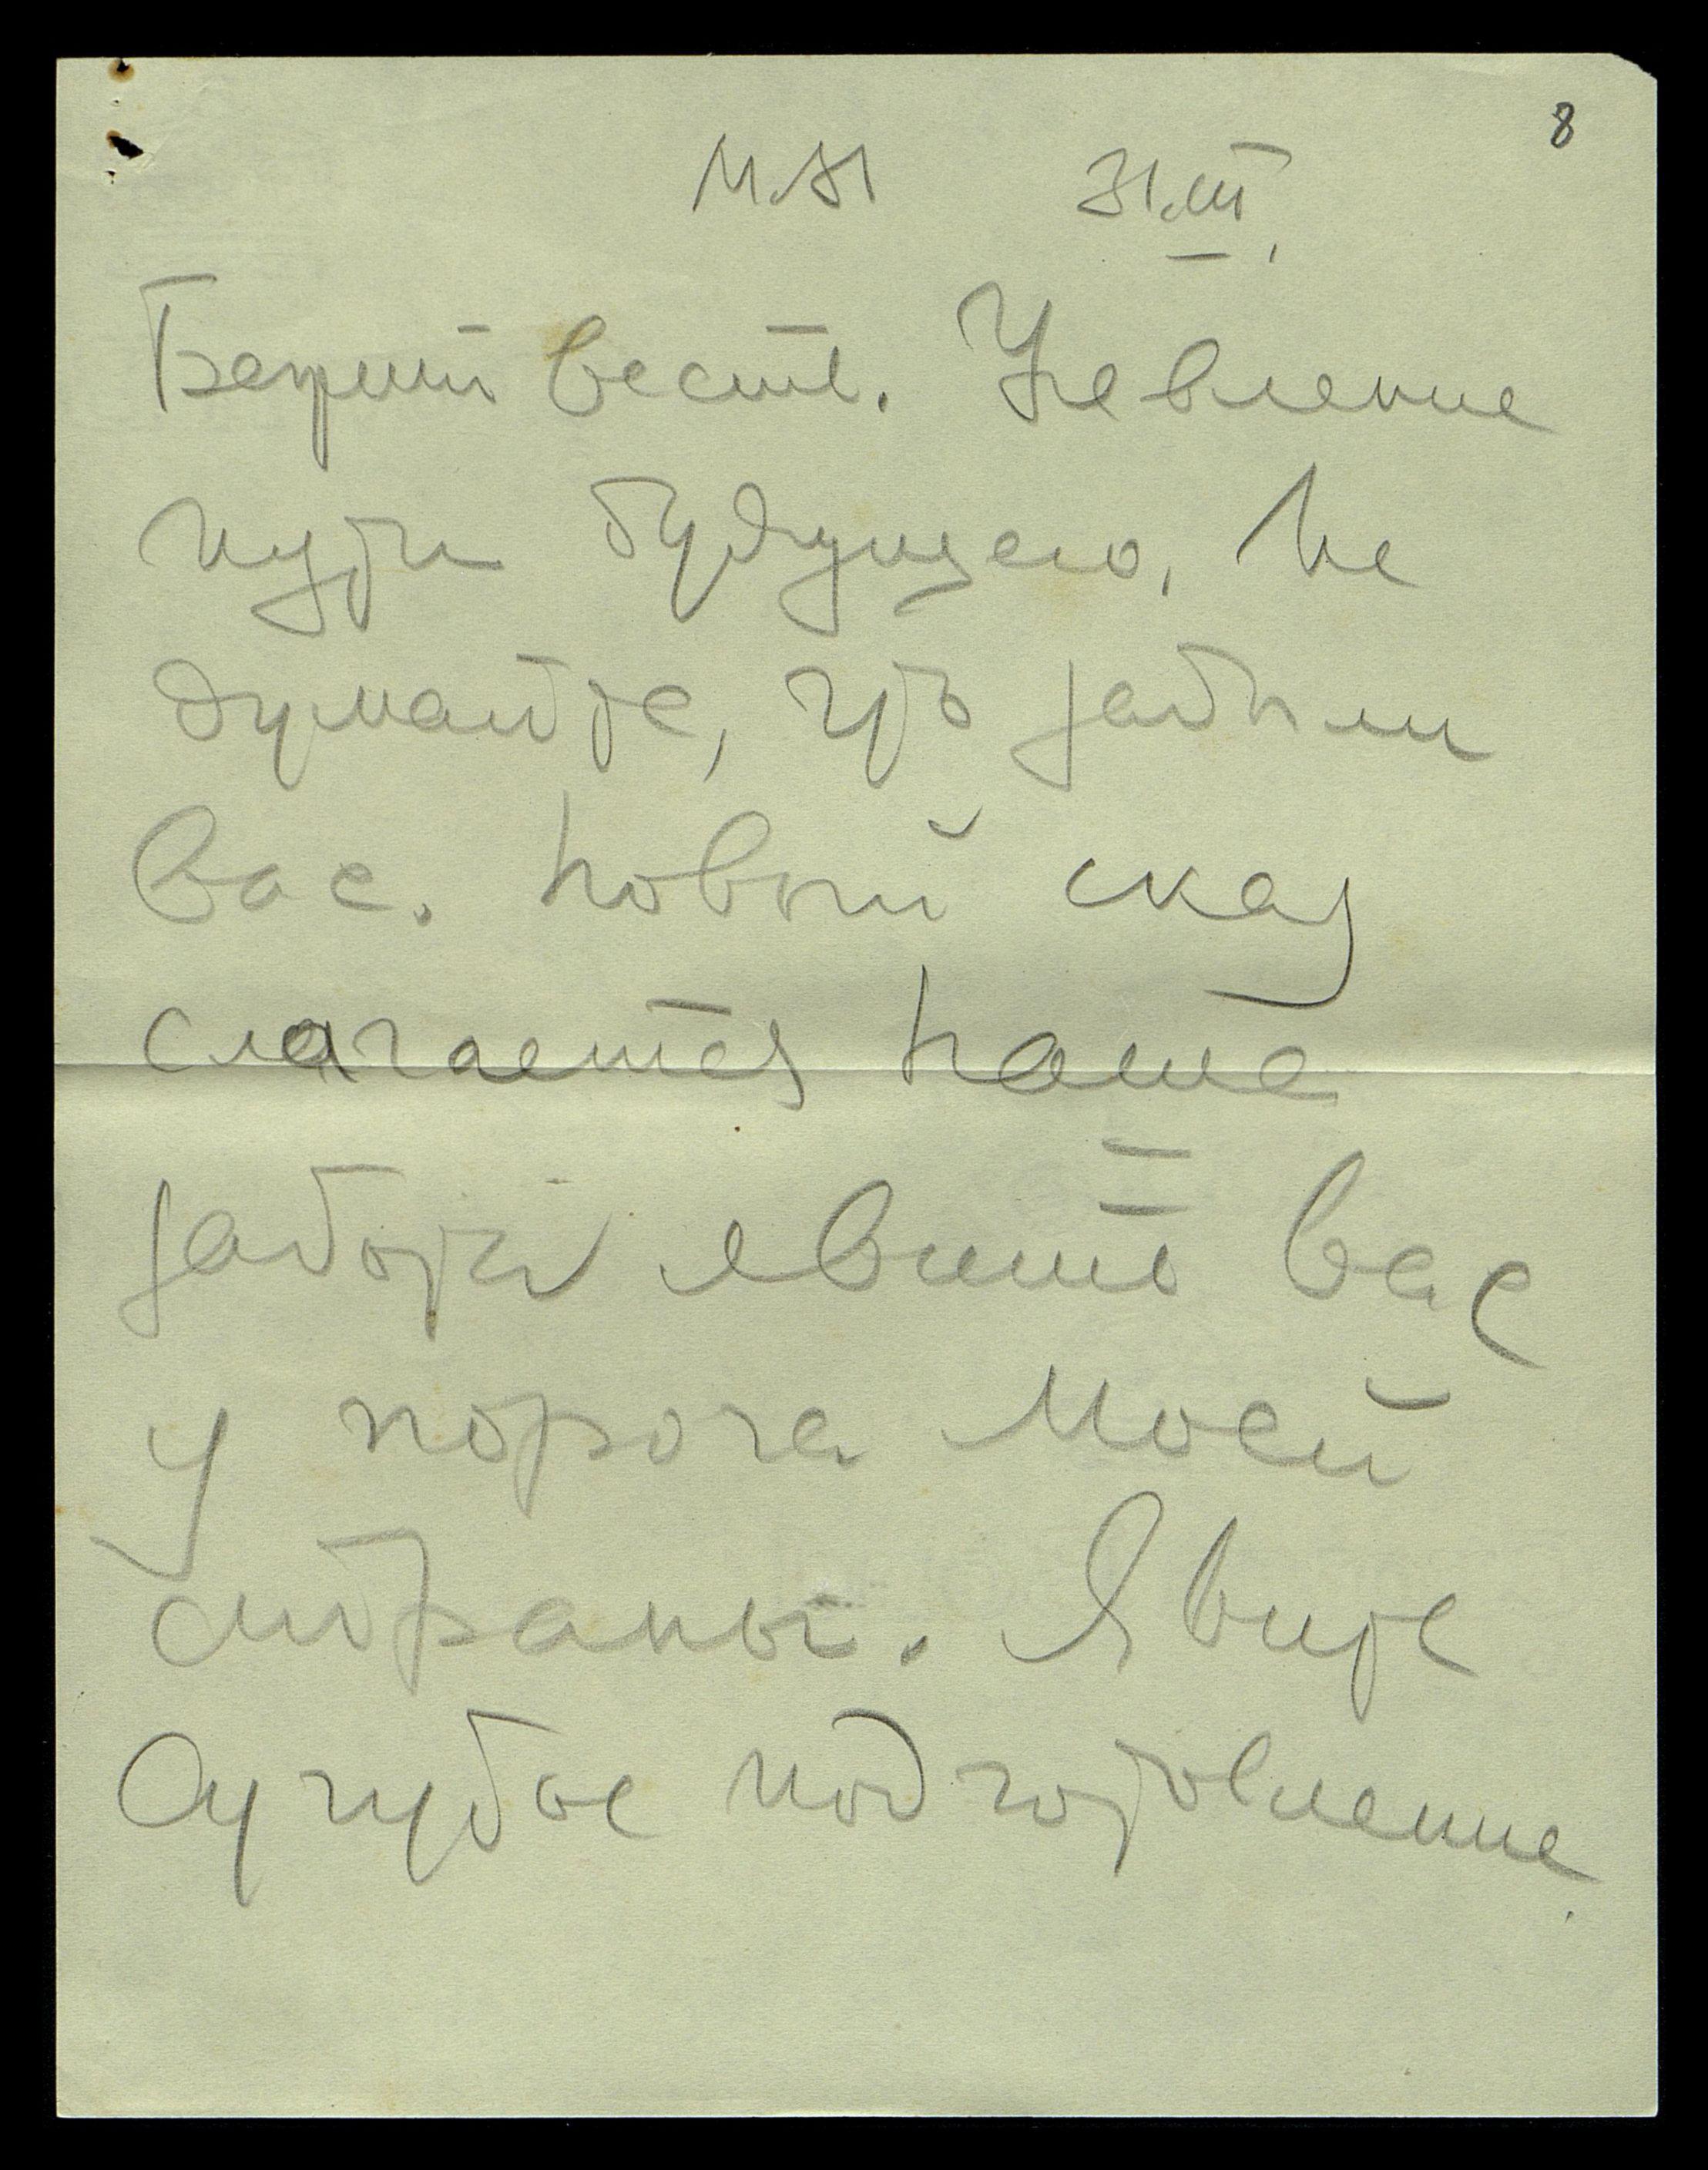 8
31.III.
весть. Уявление
пути будущего. Не
думайте, что забыли
вас. Новый сказ
слагается. Наша
забота явить вас
у порога Моей
страны. Явите
сугубое подготовление.